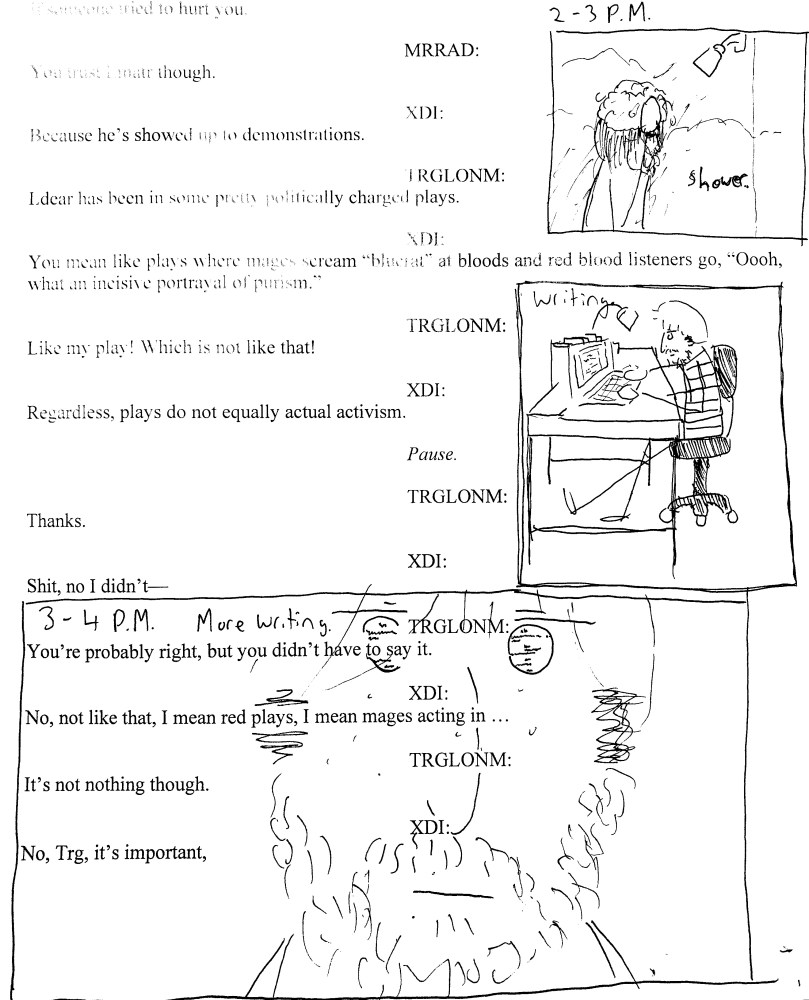 If someone tried to hurt you.
2-3 P.M.
MRRAD:
You trust though.
XDI:
Because he's showed up to demonstrations.
TRGLONM:
Ldear has been in some pretty politically charged plays.
shower.
XDI:
You mean like plays where mages scream “bluerat” at bloods and red blood listeners go, “Oooh,
what an incisive portrayal of purism.”
writing
TRGLONM:
Like my play! Which is not like that!
XDI:
Regardless, plays do not equally actual activism.
Pause.
TRGLONM:
Thanks.
XDI:
Shit, no I didn't—
3-4 P.M. More writing.
TRGLONM:
You're probably right, but you didn't have to say it.
XDI:
No, not like that, I mean red plays, I mean mages acting in …
TRGLONM:
It's not nothing though.
XDI:
No, Trg, it's important,